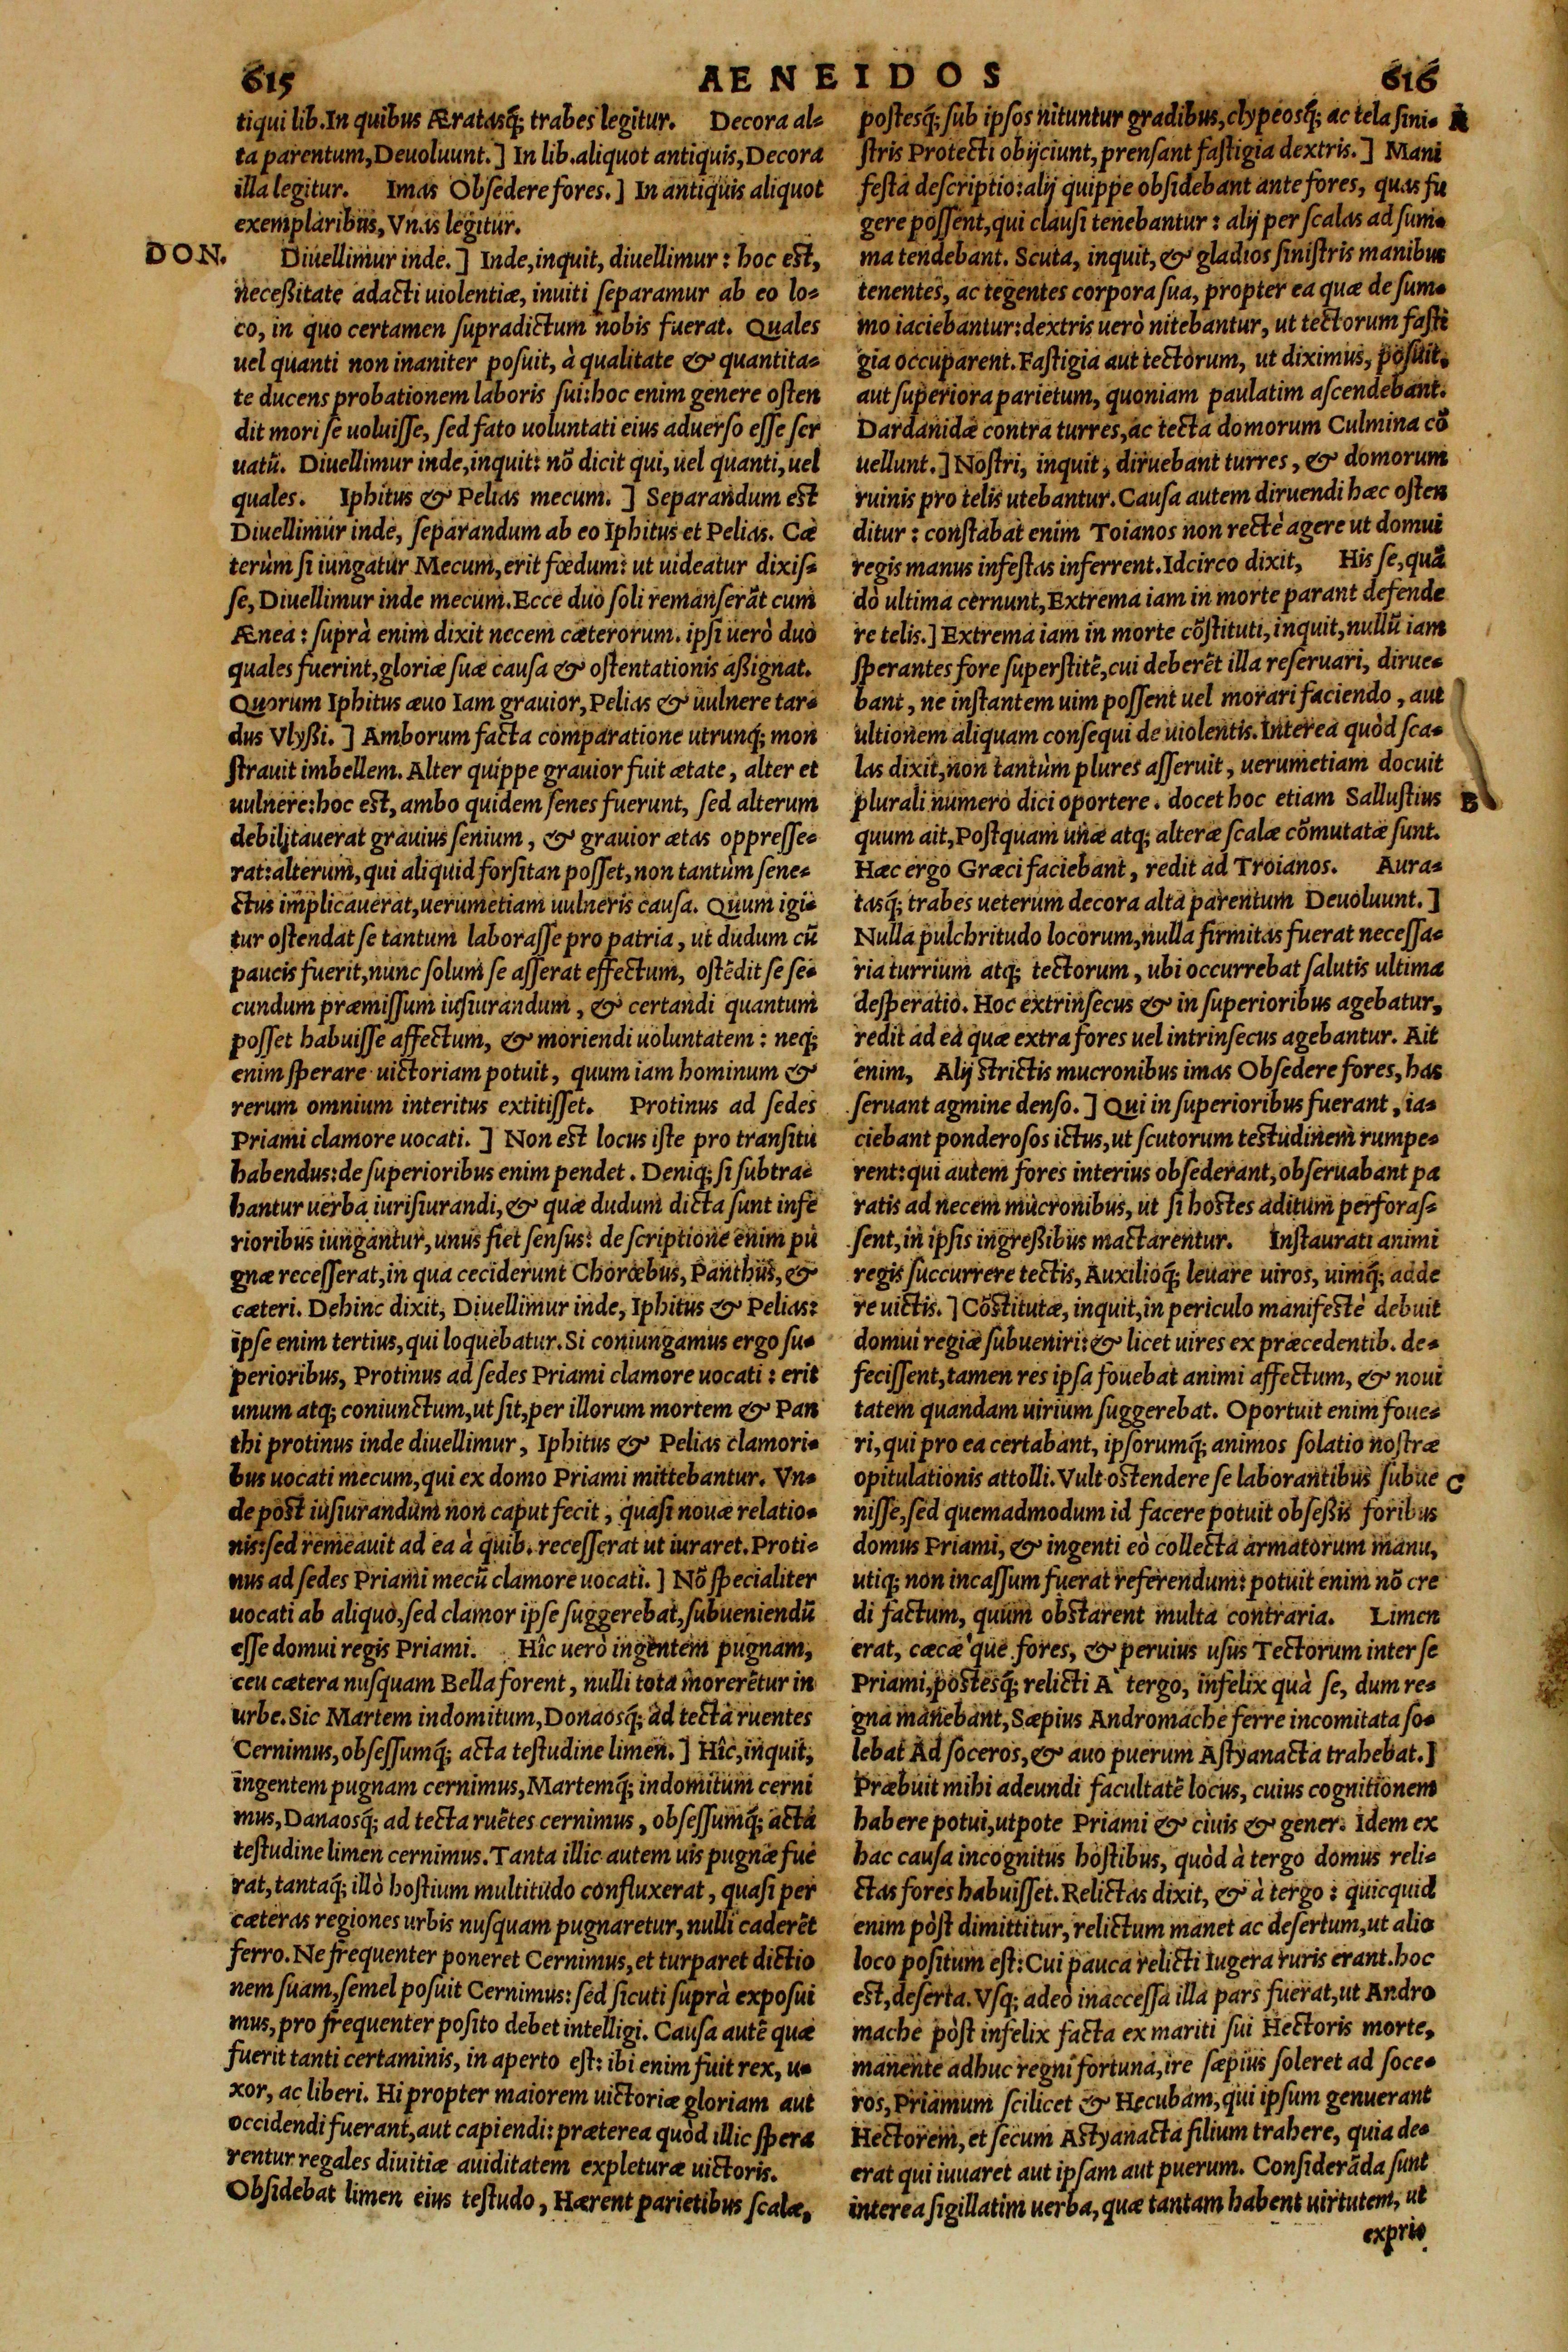 615
AENEIDOS
616
tiqui lib. In quibus Æratasq́; trabes legitur. Decora al-
ta parentum, Deuoluunt.] In lib. aliquot antiquis, Decora
illa legitur. Imas Obsedere fores.] In antiquis aliquot
exemplaribus, Vnas legitur.
DON.
Diuellimur inde.] Inde, inquit, diuellimur: hoc est,
neceßitate adacti uiolentiæ, inuiti separamur ab eo lo-
co, in quo certamen supradictum nobis fuerat. Quales
uel quanti non inaniter posuit, à qualitate & quantita-
te ducens probationem laboris sui: hoc enim genere osten
dit mori se uoluisse, sed fato uoluntati eius aduerso esse ser
uatũ. Diuellimur inde, inquit: nõ dicit qui, uel quanti, uel
quales. Iphitus & Pelias mecum.] Separandum est
Diuellimur inde, separandum ab eo Iphitus et Pelias. Cæ
terùm si iungatur Mecum, erit fœdum: ut uideatur dixis-
se, Diuellimur inde mecum. Ecce duo soli remanserãt cum
Ænea: suprà enim dixit necem cæterorum. ipsi uerò duo
quales fuerint, gloriæ suæ causa & ostentationis aßignat.
Quorum Iphitus æuo Iam grauior, Pelias & uulnere tar-
dus Vlyßi.] Amborum facta comparatione utrunq́; mon
strauit imbellem. Alter quippe grauior fuit ætate, alter et
uulnere: hoc est, ambo quidem senes fuerunt, sed alterum
debilitauerat grauius senium, & grauior ætas oppresse-
rat: alterum, qui aliquid forsitan posset, non tantùm sene-
ctus implicauerat, uerumetiam uulneris causa. Quum igi-
tur ostendat se tantum laborasse pro patria, ut dudum cũ
paucis fuerit, nunc solum se asserat effectum, ostẽdit se se-
cundum præmissum iusiurandum, & certandi quantum
posset habuisse affectum, & moriendi uoluntatem: neq́;
enim sperare uictoriam potuit, quum iam hominum &
rerum omnium interitus extitisset. Protinus ad sedes
Priami clamore uocati.] Non est locus iste pro transitu
habendus: de superioribus enim pendet. Deniq; si subtra-
hantur uerba iurisiurandi, & quæ dudum dicta sunt infe
rioribus iungantur, unus fiet sensus: descriptione enim pu
gnæ recesserat, in qua ceciderunt Chorœbus, Panthus, &
cæteri. Dehinc dixit, Diuellimur inde, Iphitus & Pelias:
ipse enim tertius, qui loquebatur. Si coniungamus ergo su-
perioribus, Protinus ad sedes Priami clamore uocati: erit
unum atq; coniunctum, ut sit, per illorum mortem & Pan
thi protinus inde diuellimur, Iphitus & Pelias clamori-
bus uocati mecum, qui ex domo Priami mittebantur. Vn-
de post iusiurandum non caput fecit, quasi nouæ relatio-
nis: sed remeauit ad ea à quib. recesserat ut iuraret. Proti-
nus ad sedes Priami mecũ clamore uocati.] Nõ specialiter
uocati ab aliquo, sed clamor ipse suggerebat, subueniendũ
esse domui regis Priami. Hîc uerò ingentem pugnam,
ceu cætera nusquam Bella forent, nulli tota morerẽtur in
urbe. Sic Martem indomitum, Donaosq́; ad tecta ruentes
Cernimus, obsessumq́; acta testudine limen.] Hîc, inquit,
ingentem pugnam cernimus, Martemq́; indomitum cerni
mus, Danaosq́; ad tecta ruẽtes cernimus, obsessumq́; acta
testudine limen cernimus. Tanta illic autem uis pugnæ fue
rat, tantaq́; illò hostium multitudo confluxerat, quasi per
cæteras regiones urbis nusquam pugnaretur, nulli caderẽt
ferro. Ne frequenter poneret Cernimus, et turparet dictio
nem suam, semel posuit Cernimus: sed sicuti suprà exposui
mus, pro frequenter posito debet intelligi. Causa autẽ quæ
fuerit tanti certaminis, in aperto est: ibi enim fuit rex, u-
xor, ac liberi. Hi propter maiorem uictoriæ gloriam aut
occidendi fuerant, aut capiendi: præterea quòd illic spera
rentur regales diuitiæ auiditatem expleturæ uictoris.
Obsidebat limen eius testudo, Hærent parietibus scalæ,
postesq́; sub ipsos nituntur gradibus, clypeosq́; ac tela sini-
A
stris Protecti obijciunt, prensant fastigia dextris.] Mani
festa descriptio: alij quippe obsidebant ante fores, quas fu
gere possent, qui clausi tenebantur: alij per scalas ad sum-
ma tendebant. Scuta, inquit, & gladios sinistris manibus
tenentes, ac tegentes corpora sua, propter ea quæ de sum-
mo iaciebantur: dextris uerò nitebantur, ut tectorum fasti
gia occuparent. Fastigia aut tectorum, ut diximus, posuit,
aut superiora parietum, quoniam paulatim ascendebant.
Dardanidæ contra turres, ac tecta domorum Culmina cõ
uellunt.] Nostri, inquit, diruebant turres, & domorum
ruinis pro telis utebantur. Causa autem diruendi hæc osten
ditur: constabat enim Toianos non rectè agere ut domui
regis manus infestas inferrent. Idcirco dixit, His se, quã
dò ultima cernunt, Extrema iam in morte parant defende
re telis.] Extrema iam in morte cõstituti, inquit, nullũ iam
sperantes fore superstitẽ, cui deberẽt illa reseruari, dirue-
bant, ne instantem uim possent uel morari faciendo, aut
ultionem aliquam consequi de uiolentis. Interea quòd sca-
las dixit, non tantùm plures asseruit, uerumetiam docuit
plurali numero dici oportere. docet hoc etiam Sallustius
B
quum ait, Postquam unæ atq; alteræ scalæ cõmutatæ sunt.
Hæc ergo Græci faciebant, redit ad Troianos. Aura-
tasq́; trabes ueterum decora alta parentum Deuoluunt.]
Nulla pulchritudo locorum, nulla firmitas fuerat necessa-
ria turrium atq; tectorum, ubi occurrebat salutis ultima
desperatio. Hoc extrinsecus & in superioribus agebatur,
redit ad ea quæ extra fores uel intrinsecus agebantur. Ait
enim, Alij strictis mucronibus imas Obsedere fores, has
seruant agmine denso.] Qui in superioribus fuerant, ia-
ciebant ponderosos ictus, ut scutorum testudinem rumpe-
rent: qui autem fores interius obsederant, obseruabant pa
ratis ad necem mucronibus, ut si hostes aditum perforas-
sent, in ipsis ingreßibus mactarentur. Instaurati animi
regis succurrere tectis, Auxilioq́; leuare uiros, uimq́; adde
re uictis.] Cõstitutæ, inquit, in periculo manifestè debuit
domui regiæ subueniri: & licet uires ex præcedentib. de-
fecissent, tamen res ipsa fouebat animi affectum, & noui
tatem quandam uirium suggerebat. Oportuit enim foue-
ri, qui pro ea certabant, ipsorumq́; animos solatio nostræ
opitulationis attolli. Vult ostendere se laborantibus subue
C
nisse, sed quemadmodum id facere potuit obseßis foribus
domus Priami, & ingenti eò collecta armatorum manu,
utiq; non incassum fuerat referendum: potuit enim nõ cre
di factum, quum obstarent multa contraria. Limen
erat, cæcæ'que fores, & peruius usus Tectorum inter se
Priami, postesq́; relicti A' tergo, infelix quà se, dum re-
gna manebant, Sæpius Andromache ferre incomitata so-
lebat Ad soceros, & auo puerum Astyanacta trahebat.]
Præbuit mihi adeundi facultatẽ locus, cuius cognitionem
habere potui, utpote Priami & ciuis & gener. Idem ex
hac causa incognitus hostibus, quòd à tergo domus reli-
ctas fores habuisset. Relictas dixit, & à tergo: quicquid
enim pòst dimittitur, relictum manet ac desertum, ut alio
loco positum est: Cui pauca relicti Iugera ruris erant. hoc
est, deserta. Vsq; adeò inaccessa illa pars fuerat, ut Andro
mache pòst infelix facta ex mariti sui Hectoris morte,
manente adhuc regni fortuna, ire sæpius soleret ad soce-
ros, Priamum scilicet & Hecubam, qui ipsum genuerant
Hectorem, et secum Astyanacta filium trahere, quia de-
erat qui iuuaret aut ipsam aut puerum. Considerãda sunt
interea sigillatim uerba, quæ tantam habent uirtutem, ut
exprio